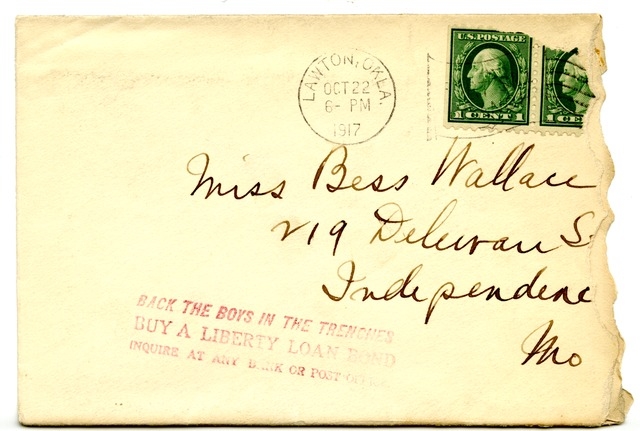 U.S. POSTAGE
1 CENT 1
1 CE
LAWTON, OKLA.
OCT 22
6- PM
1917
Miss Bess Wallace
219 Delewan S
Independenc
Mo
BACK THE BOYS IN THE TRENCHES
BUY A LIBERTY LOAN BOND
INQUIRE AT ANY BANK OR POST-OFFICE